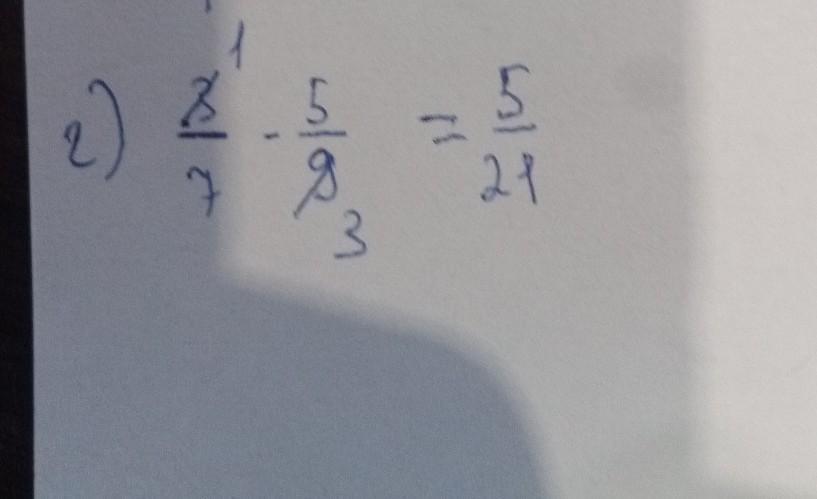 г) 3¹/7 - 5/9₃ = 5/21